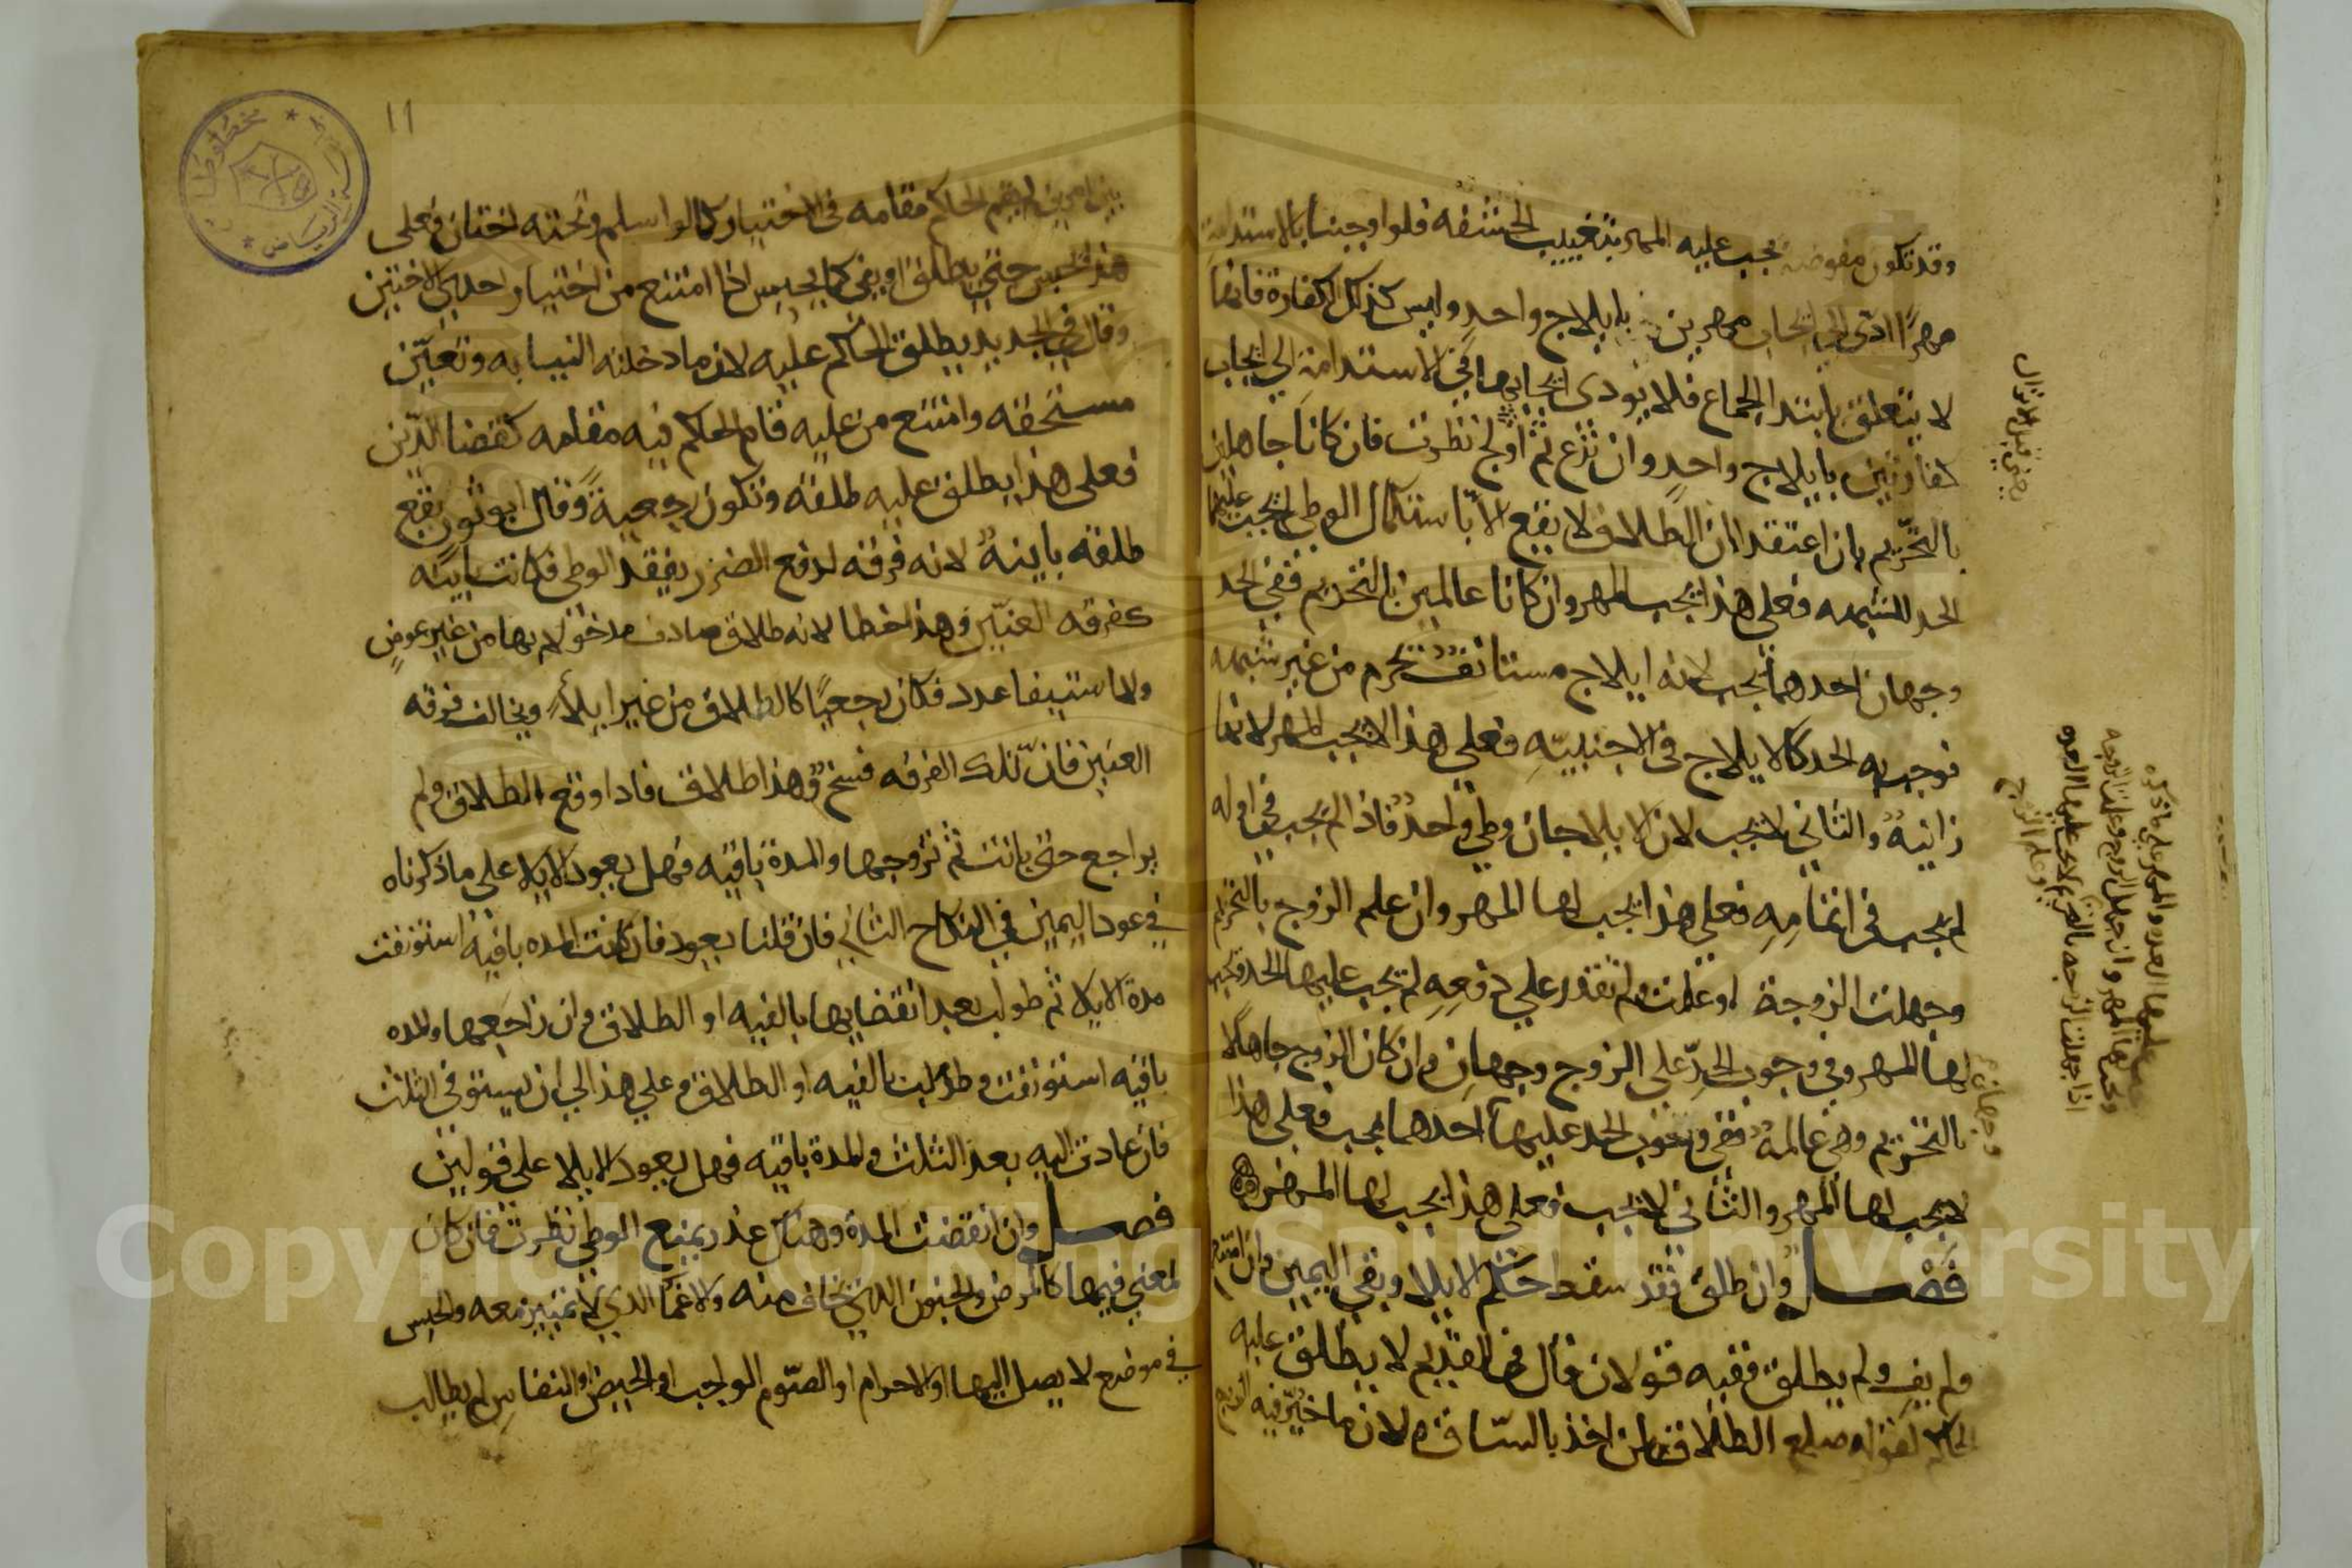 وقد تكون مفوضة يجب عليه المهر بتغييب الحشفه فلو اوجبنا بالاستدامة
مهرًا ادى الى ايجاب مهرين بايلاج واحد وليس كذلك الكفارة فانها
لا يتعلق بابتدا الجماع فلا يودى ايجابها في الاستدامة الي ايجاب
كفارتين بايلاج واحد وان نزع ثم اولج نظرت فان كانا جاهلين
بالتحريم بان اعتقدا ان الطلاق لا يقع الا باستكمال الوطي لم يجب عليهما
الحد للشبهه فعلى هذا يجب المهر وان كانا عالمين بالتحريم ففي الحد
وجهان احدهما يجب لانه ايلاج مستانف محرم من غير شبهه
فوجب به الحد كالايلاج في الاجنبيه فعلى هذا لا يجب المهر لانها
زانيه والثاني لا يجب لان الايلاجان وطي واحد فاذا لم يجب في اوله
لم يجب في اتمامه فعلى هذا يجب لها المهر وان علم الزوج بالتحريم
وجهلت الزوجة او علمت ولم تقدر علي دفعه لم يجب عليها الحد ويجب
لها المهر وفي وجوب الحد على الزوج وجهان وان كان الزوج جاهلا
بالتحريم وهي عالمة ففي وجوب الحد عليها احدهما يجب فعلى هذا
لا يجب لها المهر والثاني لا يجب فعلى هذا يجب لها المهر
فصل وان طلق فقد سقط حكم الايلا وبقي اليمين وان امتنع
ولم يف ولم يطلق ففيه قولان قال في القديم لا يطلق عليه
الحاكم لقوله صلعم الطلاق لمن اخذ بالساق ولان ما خير فيه الزوج
يعني قبل الانزال
وجهان
١١
بين امرين لم يقم الحاكم مقامه في الاختيار كما لو اسلم وتحته اختان فعلى
هذا يحبس حتى يطلق او يفي كما يحبس اذا امتنع من اختيار احدى الاختين
وقال في الجديد يطلق الحاكم عليه لان ما دخلته النيابه وتعين
مستحقه وامتنع من عليه قام الحاكم فيه مقامه كقضا الدين
فعلى هذا يطلق عليه طلقه وتكون رجعية وقال ابو ثور يقع
طلقه باينة لانه فرقه لدفع الضرر بفقد الوطي فكانت باينه
كفرقه العنين وهذا خطا لانه طلاق صادف مدخولا بها من غير عوض
ولا استيفا عدد فكان رجعيًا كالطلاق من غير ايلاء ويخالف فرقه
العنين فان تلك الفرقه فسخ وهذا طلاق فاذا وقع الطلاق ولم
يراجع حتى بانت ثم تزوجها والمدة باقيه فهل يعود الايلا على ما ذكرناه
في عود اليمين في النكاح الثاني فان قلنا يعود فان كانت المده باقيه استونفت
مدة الايلا ثم طولب بعد انقضايها بالفيه او الطلاق وان راجعها والمده
باقيه استونفت وطولب بالفيه او الطلاق وعلي هذا الي ان يستوفي الثلث
فان عادت اليه بعد الثلث والمدة باقيه فهل يعود الايلا على قولين
فصل وان انقضت المدة وهناك عذر يمنع الوطي نظرت فان كان
لمعني فيها كالمرض والجنون الذي يخاف منه والاغما الذي لا تمييز معه والحبس
في موضع لا يصل اليها او الاحرام او الصوم الواجب او الحيض والنفاس لم يطالب
Copyright © King Saud University